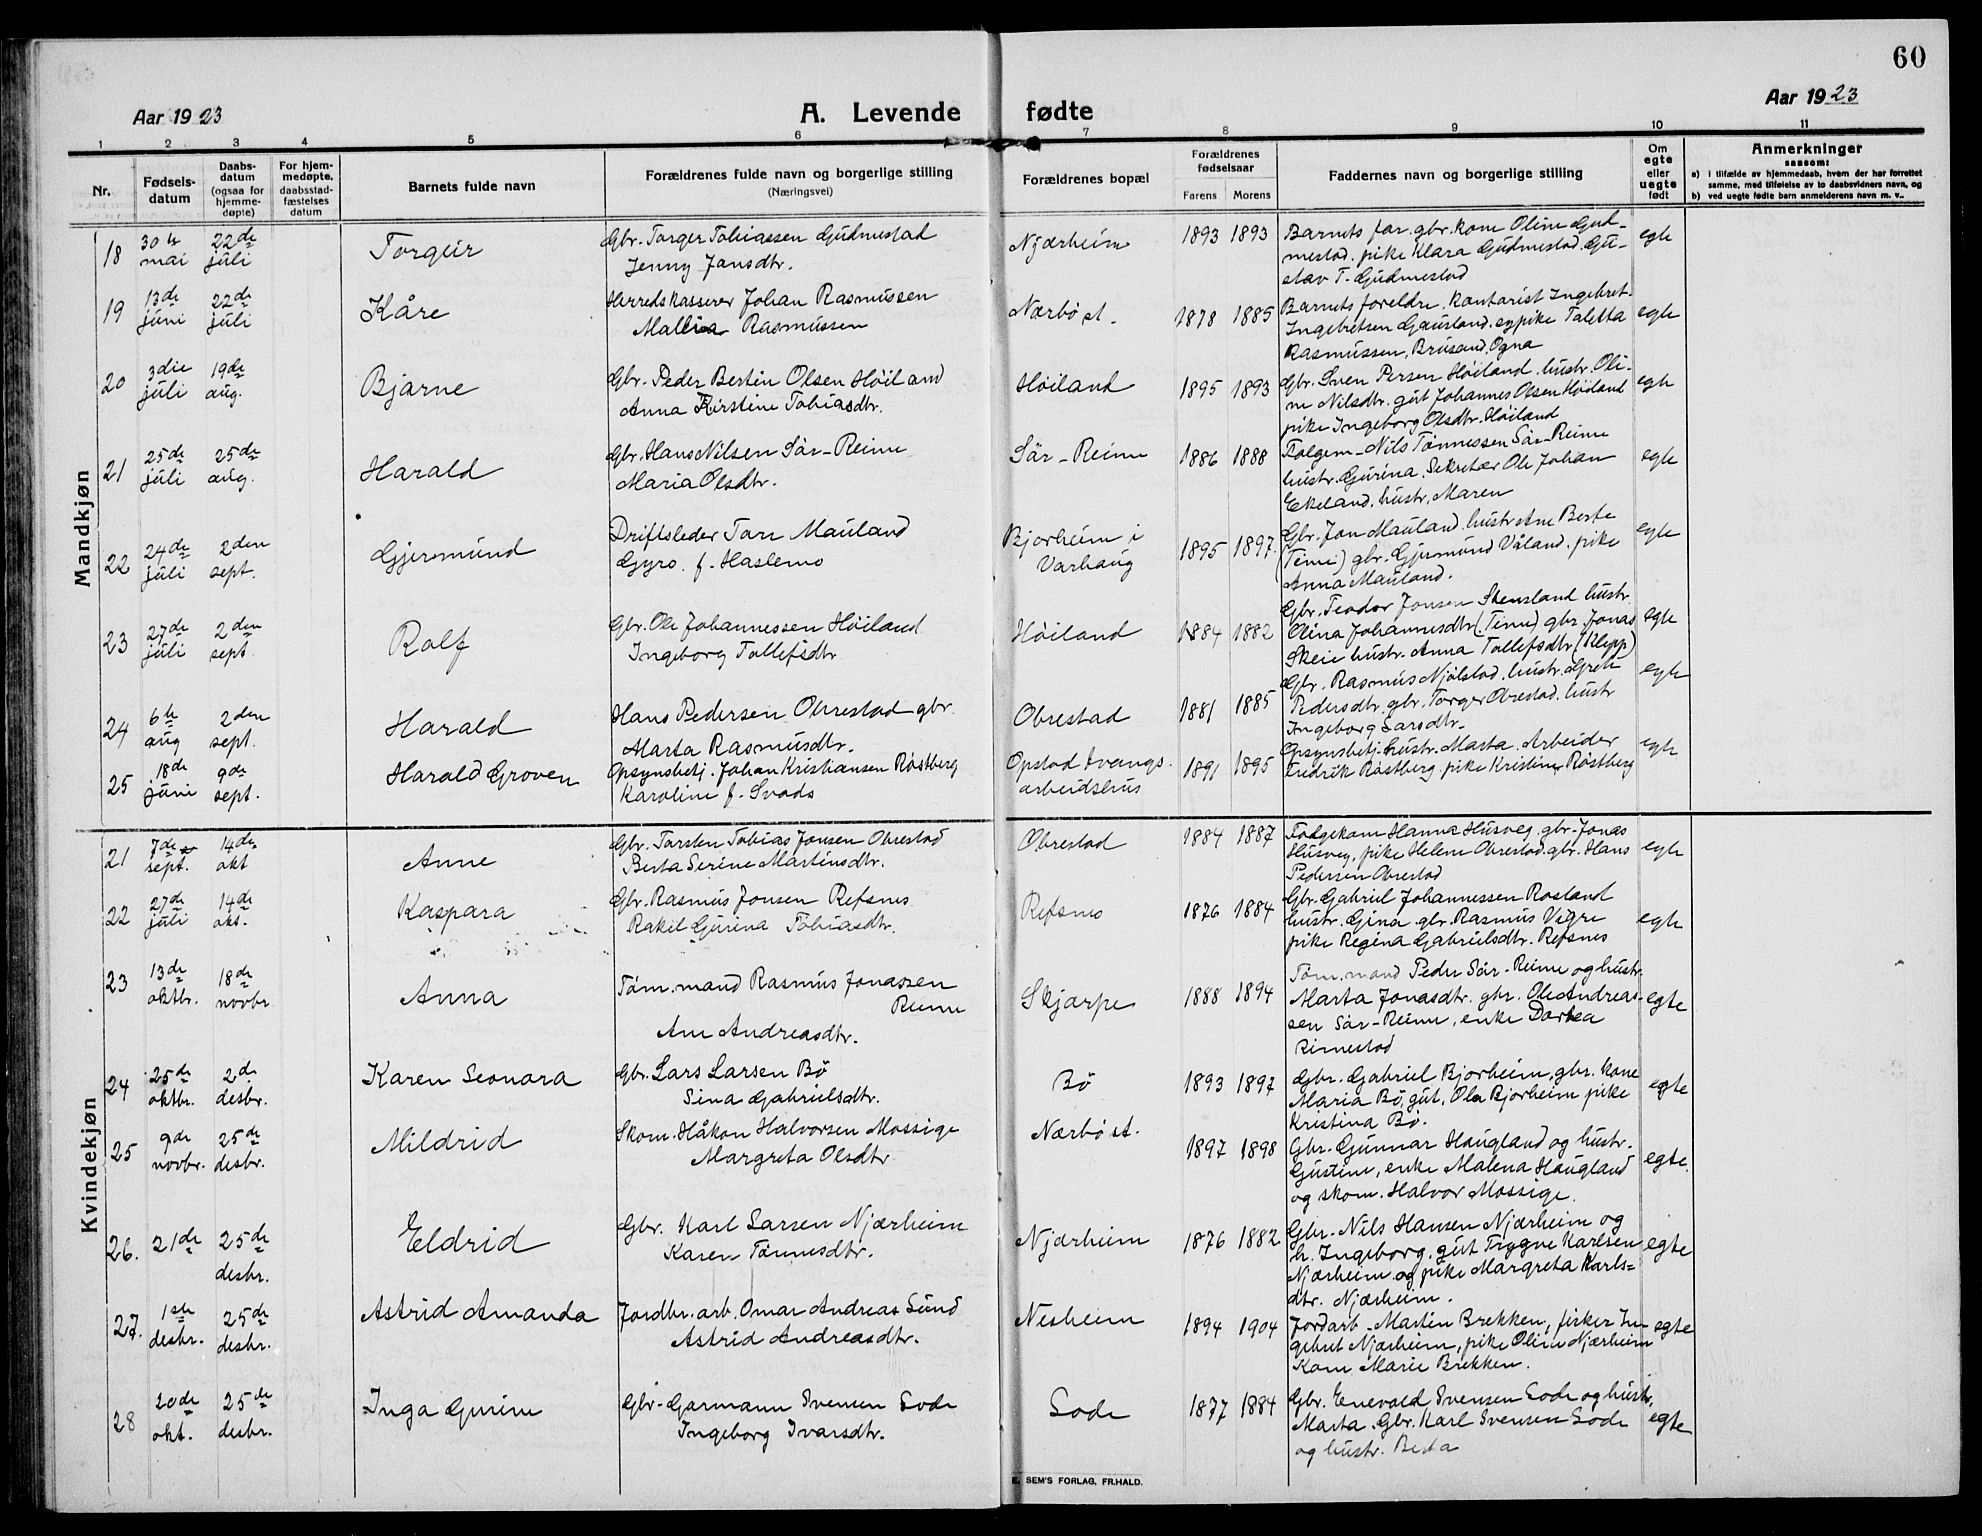 60
Aar 1923 A. Levende fødte Aar 1923
1 2 3 4 5 6 7 8 9 10 11
Nr. Fødsels-datum Daabs-datum (ogsaa for hjemme-døpte) For hjem-medøpte, daabsstad-fæstelses datum Barnets fulde navn Forældrenes fulde navn og borgerlige stilling (Næringsvei) Forældrenes bopæl Forældrenes fødselsaar Farens Morens Faddernes navn og borgerlige stilling Om egte eller uegte født Anmerkninger saasom:
a) i tilfælde av hjemmedaab, hvem der har forrettet samme, med tilføielse av to daabsvidners navn, og
b) ved uegte fødte barn anmelderens navn m. v..
Mandkjøn
18 30te mai 22de juli Torgeir Gbr. Torger Tobiassen Gudmestad Njærheim 1893 1893 Barnets far. gbr. kone Oline Gud- egte
Jenny Jansdtr. mestad. pike Klara Gudmestad. Gu-
stav T. Gudmestad
19 13de juni 22de juli Kåre Herredskasserer Johan Rasmussen Nærbø st. 1878 1885 Barnets foreldre. Kontorist Ingebret egte
Rasmussen Ingebretsen Gausland. pike Taletta
Rasmussen, Brusand, Ogna
20 3die juli 19de aug. Bjarne Gbr. Peder Bertin Olsen Høiland Høiland 1895 1893 Gbr. Sven Persen Høiland. hustr. Oli- egte
Anna Kirstine Tobiasdtr. ne Nilsdtr. gut Johannes Olsen Høiland
pike Ingeborg Olsdtr. Høiland
21 25de juli 25de aug. Harald Gbr. Hans Nilsen Sør-Reime Sør-Reime 1886 1888 Folgem. Nils Tønnessen Sør-Reime egte
Maria Olsdtr. hustr. Gurina. Sekretær Ole Johan
Ekeland, hustr. Maren
22 24de juli 2den sept. Gjermund Driftsleder Tore Mauland Bjorheim i Varhaug 1895 1897. Gbr. Jon Mauland. hustr. Ane Berte egte
Gyro. f. Haslemo (Time) gbr. Gjermund Våland. pike
Anna Mauland.
23 27de juli 2den sept. Rolf Gbr. Ole Johannessen Høiland Høiland 1884 1882 Gbr. Teodor Jonsen Skensland hustr. egte
Ingeborg Tollefsdtr. Olina Johannesdtr. (Time) gbr. Jonas
Skeie hustr. Anna Tollefsdtr. (Klepp)
24 6te aug 2den sept. Harald Hans Pedersen Obrestad gbr. Obrestad 1881 1885 Gbr. Rasmus Njølstad. hustr. Grete egte
Marta Rasmusdtr. Pedersdtr. gbr. Torger Obrestad. hustr
Ingeborg Larsdtr.
25 18de juni 9de sept. Harald Groven Opsynsbetj. Johan Kristiansen Røstberg Opstad tvangs-arbeidshus 1891 1895 Opsynsbetj. hustr. Marta. Arbeider egte
Karoline f. Svads Fredrik Røstberg pike Kristine Røstberg
Kvindekjøn
21 7de sept. 14de okt Anne Gbr. Torsten Tobias Jonsen Obrestad Obrestad 1884 1887 Folgekone Hanna Husveg. gbr. Jonas egte
Berta Serine Martinsdtr. Husveg, pike Helene Obrestad. gbr. Hans
Pedersen Obrestad
22 27de juli 14de okt. Kaspara Gbr. Rasmus Jonsen Refsnes Refsnes 1876 1884 Gbr. Gabriel Johannessen Rosland egte
Rakel Gurina Tobiasdtr. hustr. Gina. gbr. Rasmus Vigre
pike Regina Gabrielsdtr. Refsnes
23 13de oktbr. 18de novbr Anna Tøm.mand Rasmus Jonassen Reime Skjærpe 1888 1894 Tøm.mand Peder Sør-Reime og hustr. egte
Ane Andreasdtr. Marta Jonasdtr. gbr. Ole Andreas-
sen Sør-Reime, enke Dortea
Rimestad
24 25de oktbr. 2de desbr. Karen Leonora Gbr. Lars Larsen Bø Bø 1893 1897 Gbr. Gabriel Bjorheim, gbr. kone egte
Sina Gabrielsdtr. Maria Bø, gut. Ola Bjorheim pike
Kristina Bø.
25 9de novbr. 25de desbr. Mildrid Skom. Håkon Halvorsen Mossige Nærbø st. 1897 1898 Gbr. Gunnar Haugland og hustr. egte.
Margreta Olsdtr Gustine, enke Malena Haugland
og skom. Halvor Mossige.
26. 21de 25de desbr. Eldrid Gbr. Karl Larsen Njærheim Njærheim 1876 1882 Gbr. Nils Hansen Njærheim og egte
Karen Tønnesdtr. h. Ingeborg, gut Trygve Karlsen
Njærheim og pike Margreta Karls=
dtr. Njærheim.
27. 1ste desbr. 25de desbr. Astrid Amanda Jordbr. arb. Omar Andreas Lund Nesheim 1894 1904 Jordarb. Martin Brekken, fisker In- egte
Astrid Andreasdtr. gebret Njærheim, pike Oline Njærheim
Kone Marie Brekken.
28 20de okt. 25de desbr. Inga Gurine Gbr. Garmann Svensen Lode Lode 1877 1884 Gbr. Enevald Svensen Lode og hustr. egte
Ingeborg Ivarsdtr. Marta. Gbr. Karl Svensen Lode
og hustr. Berta
E. SEM'S FORLAG, FR.HALD.